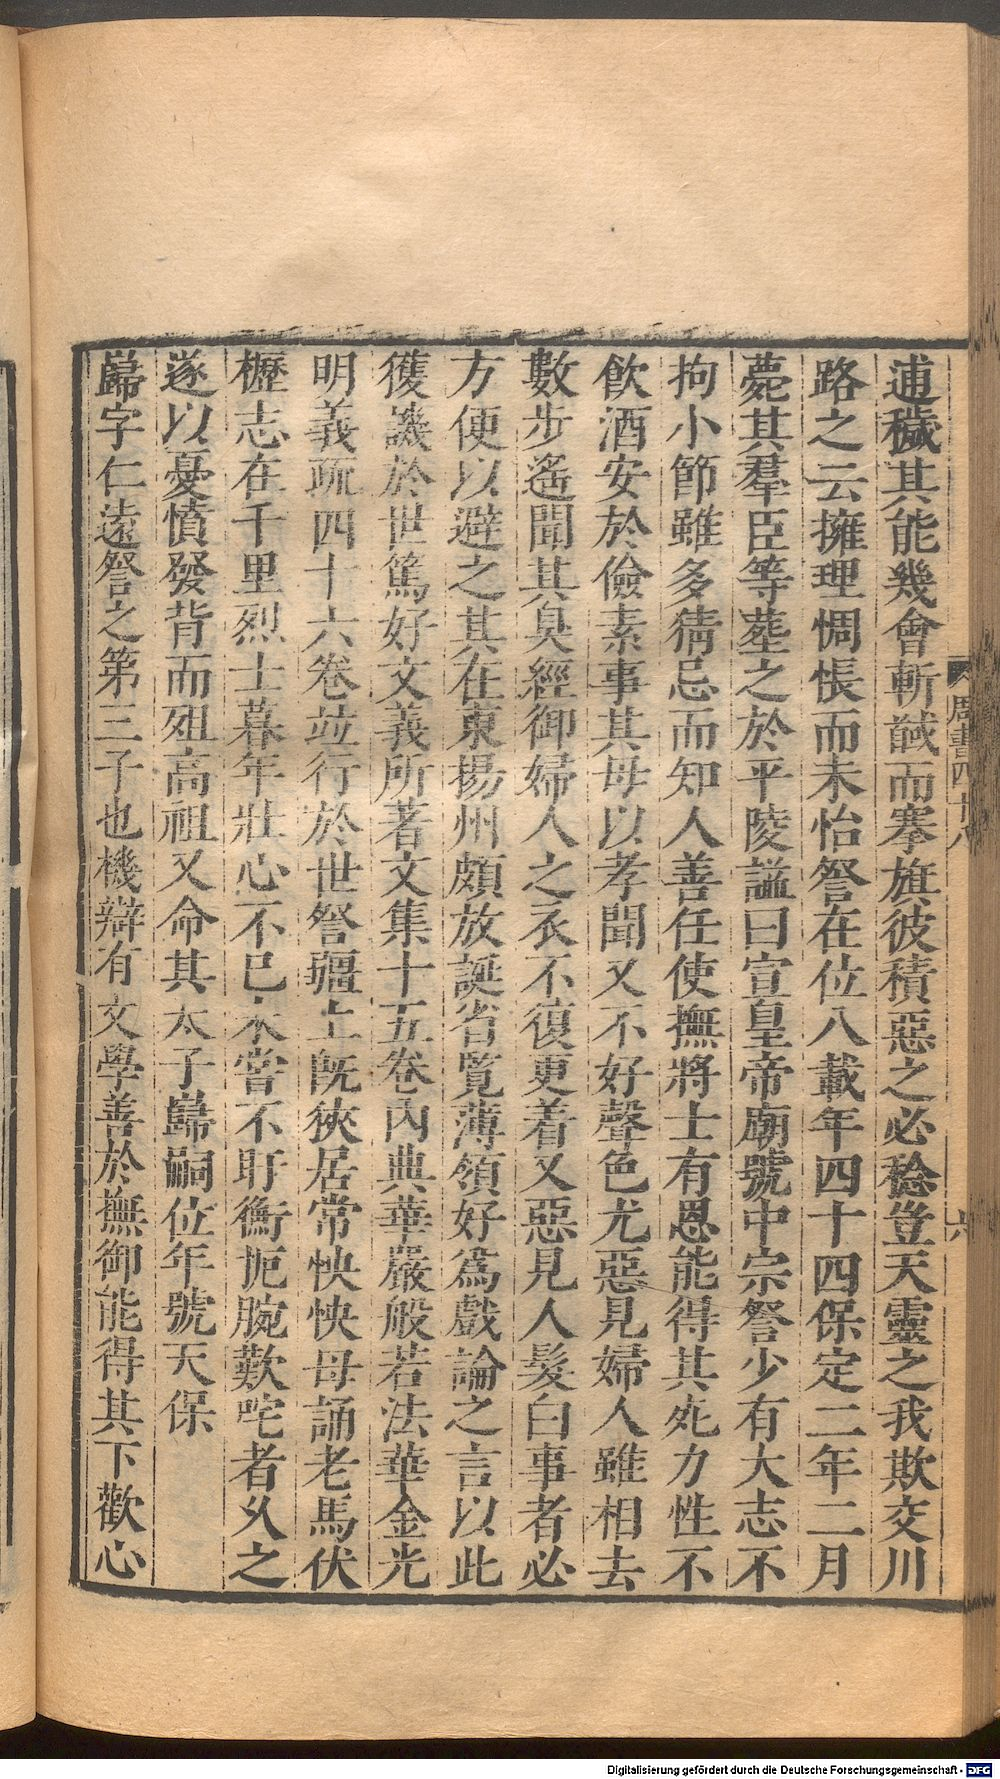 逋穢其能幾會斬馘而搴旗彼積惡之必稔豈天靈之我欺交川
路之云擁理惆悵而未怡詧在位八載年四十四保定二年二月
薨其羣臣等葬之於平陵謚曰宣皇帝廟號中宗詧少有大志不
拘小節雖多猜忌而知人善任使撫將士有恩能得其死力性不
飲酒安於儉素事其母以孝聞又不好聲色尤惡見婦人雖相去
數步遙聞其臭經御婦人之衣不復更着又惡見人髮白事者必
方便以避之其在東揚州頗放誕省覧薄領好爲戲論之言以此
獲譏於世篤好文義所著文集十五卷內典華嚴般若法華金光
明義疏四十六卷竝行於世詧疆土旣狹居常怏怏每誦老馬伏
櫪志在千里烈士暮年壯心不已未嘗不盱衡扼腕歎咤者乆之
遂以憂憤發背而殂高祖又命其太子巋嗣位年號天保
巋字仁遠詧之第三子也機辯有文學善於撫御能得其下歡心
周書四十八
六
Digitalisierung gefördert durch die Deutsche Forschungsgemeinschaft - DFG